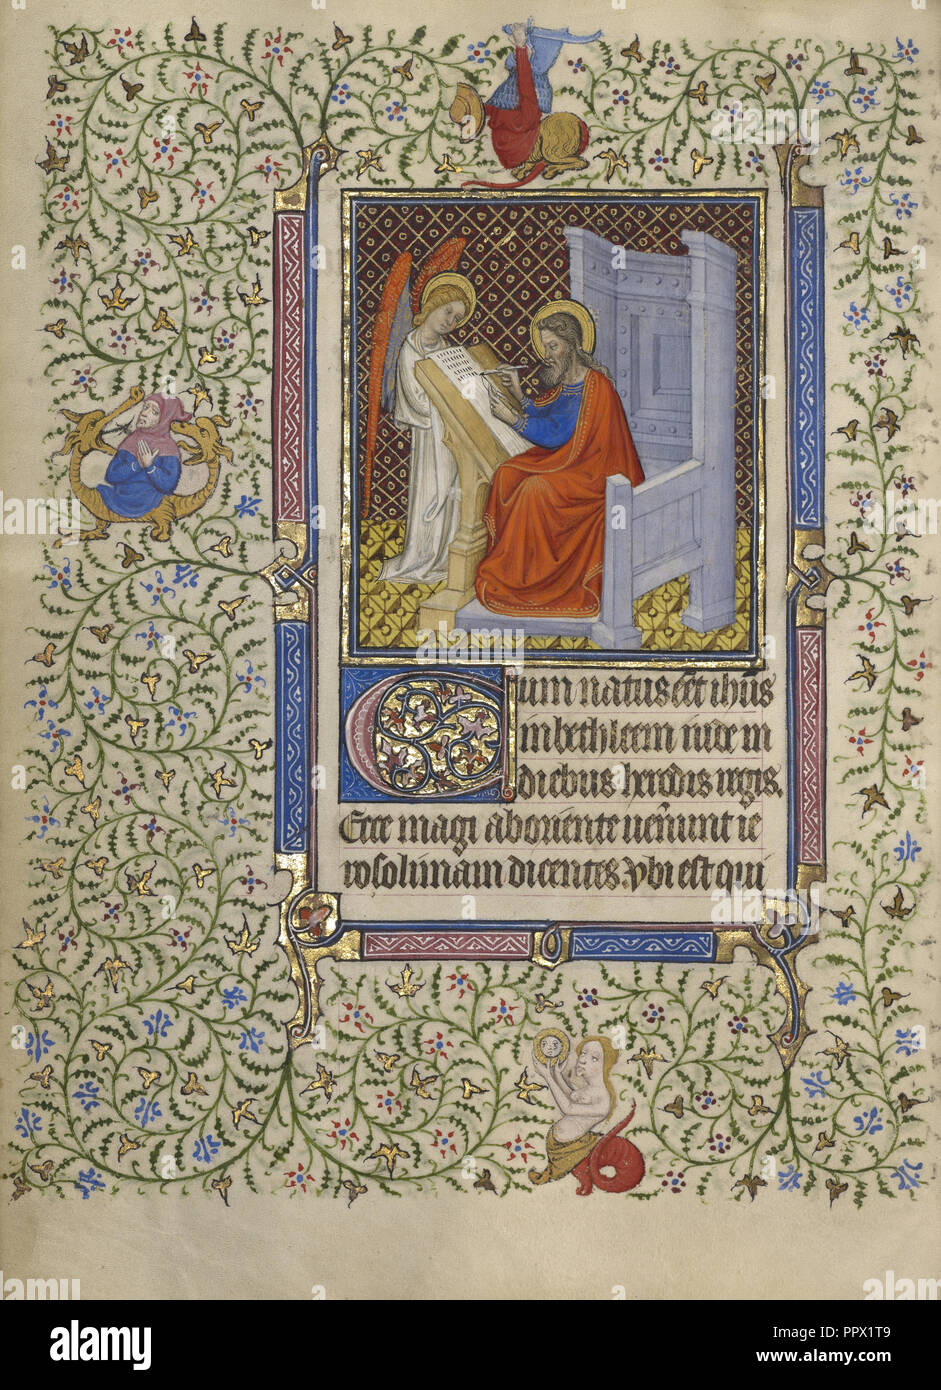 Cum natus eet ihus
in bethleem iude in
diebus herodis regis.
Ecce magi ab oriente uenerunt ie
rosolimam dicentes Vbi est qui
alamy
Image ID: PPX1T9
www.alamy.com